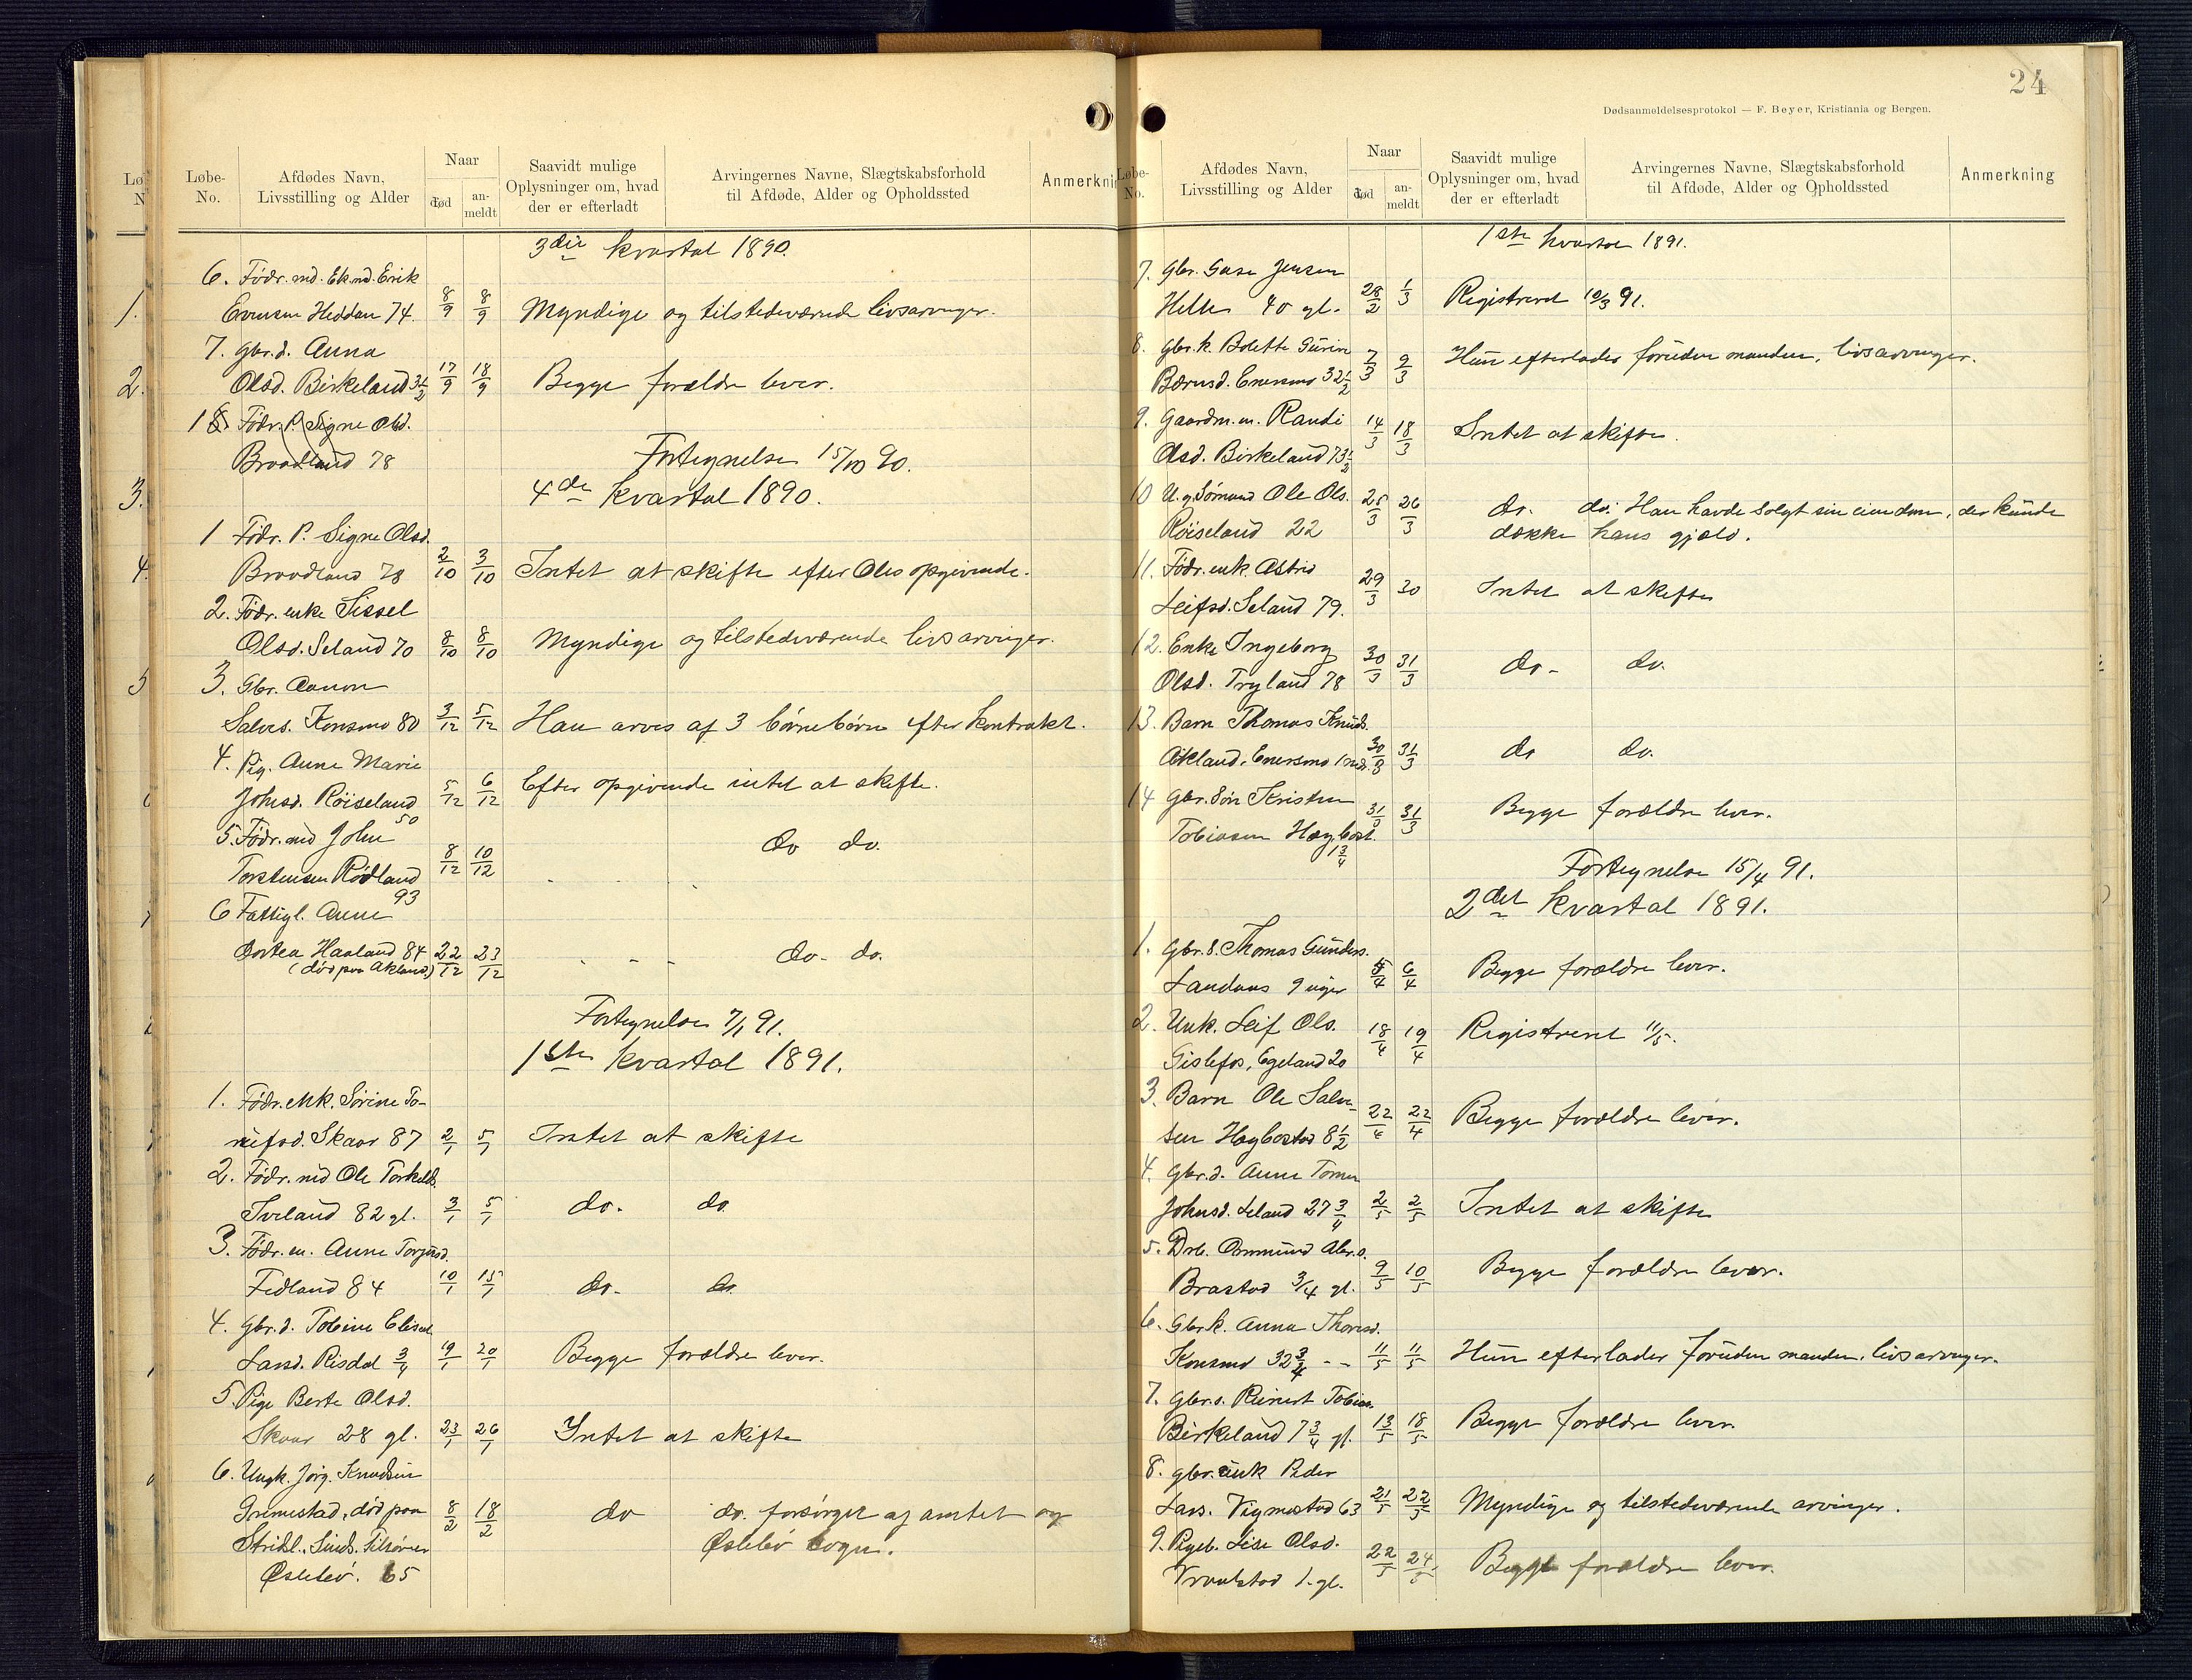 Løbe-
No.
Afdødes Navn,
Livsstilling og Alder
Naar
død
an-
meldt
Saavidt mulige
Oplysninger om, hvad
der er efterladt
Arvingernes Navne, Slægtskabsforhold
til Afdøde, Alder og Opholdssted
Anmerkni
3die kvartal 1890.
6. Fødr. md. Ekmd. Erik
Evensen Heddan 74. 8/9 8/9 Myndige og tilstedeværende livsarvinger.
7. Gbr. d. Anna
Olsd. Birkeland 3½ 17/9 18/9 Begge forældre lever.
18. Fødr. P. Signe Olsd.
Braadland 78
Fortegnelse 15/10 90.
4de kvartal 1890.
1 Fødr. P. Signe Olsd.
Braadland 78 2/10 3/10 Intet at skifte efter Oles opgivende.
2. Fødr. enke Sissel
Olsd. Seland 70 8/10 8/10 Myndige og tilstedeværende livsarvinger.
3. Gbr. Aanon
Salves. Konsmo 80 3/12 5/12 Han arves af 3 børnebørn efter kontrakt.
4. Pig. Anne Marie
Johnsd. Røiseland 50 5/12 6/12 Efter opgivende intet at skifte.
5. Fødr. md John
Torstensen Rødland 93 8/12 10/12 do do.
6 Fattigl. Anne
Dortea Haaland 84 22/12 23/12 do- do.
(død paa Akland)
Fortegnelse 7/1 91.
1ste kvartal 1891.
1. Fødr. enk. Sørine To-
nefsd. Skaar 87 2/1 5/1 Intet at skifte
2. Fødr. md Ole Torkelds.
Iveland 82 gl. 3/1 5/1 do. do.
3. Fødr. m. Anne Torjusd.
Fidland 84 10/1 15/1 do- do.
4. Gbr. d. Tobine Elisab.
Larsd. Risdal 3/4 19/1 20/1 Begge forældre lever.
5. Pige Berte Olsd.
Skaar 28 gl. 23/1 26/1 Intet at skifte
6. Ungk. Jørg. Knudsen
Grimestad, død paa 8/2 18/2 do do. forsørget af amtet og
Øslebø sogn.
Øslebø. 65
24
Dødsanmeldelsesprotokol — F. Beyer, Kristiania og Bergen.
Løbe-
No.
Afdødes Navn,
Livsstilling og Alder
Naar
død
an-
meldt
Saavidt mulige
Oplysninger om, hvad
der er efterladt
Arvingernes Navne, Slægtskabsforhold
til Afdøde, Alder og Opholdssted
Anmerkning
1ste kvartal 1891.
7. Gbr. Jensen
Helle 40 gl. 28/2 1/3 Registreret 10/3 91.
8. Gbr. k. Bolette Gurine
Bærnsd. Enersmo 32½ 7/3 9/3 Hun efterlader foruden manden, livsarvinger.
9. Gaardm. m. Randi
Olsd. Birkeland 73½ 14/3 18/3 Intet at skifte.
10 U. g. Sømand Ole Ols.
Røiseland 22 25/3 26/3 do. do. Han havde solgt sin eiendom, der kunde
dække hans gjæld.
11. Fødr. enk. Astrid
Leifsd. Seland 79. 29/3 30 Intet at skifte
12. Enke Ingeborg
Olsd. Tryland 78 30/3 31/3 do- do.
13. Barn Thomas Knuds.
Akland. Enersmo 1 md. 30/3 31/3 do do.
14 Gbr. søn Kristen
Tobiasen Hægbost. 1¾ 31/3 31/3 Begge forældre lever.
Fortegnelse 15/4 91.
2det kvartal 1891.
1. Gbr. s. Thomas Gunders.
Landaas 9 uger 5/4 6/4 Begge forældre lever.
2. Unk. Leif Ols.
Gislefos, Egeland 20 18/4 19/4 Registreret 11/5.
3. Barn Ole Salve-
sen Hægbostad 8½ 22/4 22/4 Begge forældre lever.
4. Gbr. d. Anne Tomin
Johnsd. Leland 27¾ 2/5 2/5 Intet at skifte
5. Drb. Ommund Abr. s.
Brastad 3/4 gl. 9/5 10/5 Begge forældre lever.
6. Gbr k. Anna Thorsd.
Konsmo 32¾ -- 11/5 11/5 Hun efterlader foruden manden, livsarvinger.
7. Gbr. s. Reinert Tobias.
Birkeland 7¾ gl. 13/5 18/5 Begge forældre lever.
8. gbr. enk Peder
Lars. Vigmostad 63 21/5 22/5 Myndige og tilstedeværende arvinger.
9. Pigeb. Lise Olsd.
1. gl. 22/5 24/5 Begge forældre lever.